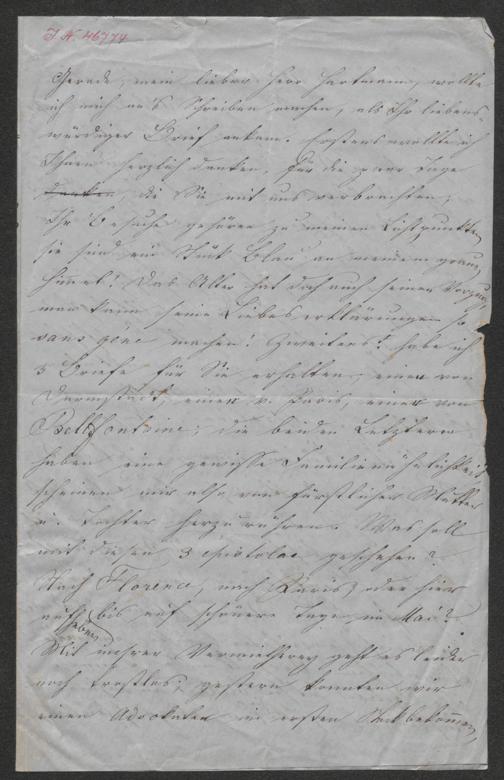 I N. 46774
Gerade, mein lieber Herr Hartmann, wollte
ich mich an's Schreiben machen, als Ihr liebens-
würdiger Brief ankam. Erstens wollte ich
Ihnen herzlich danken, für die paar Tage
danken die Sie mit uns verbrachten,
Ihr Besuche gehören zu meinen Lichtpunkten,
sie sind ein Stück Blau an meinem grauen
Himmel! Das Alter hat doch auch seinen Vorzug,
man kann seine Liebeserklärungen so
sans gêne machen! Zweitens habe ich
3 Briefe für Sie erhalten, einen von
Darmstadt, einen v. Paris, einen von
Bellefontaine; die beiden Letztern
haben eine gewisse Familienähnlichkeit,
scheinen mir also von fürstlicher Mutter
u. Tochter herzurühren. Was soll
mit diesen 3 epistolae geschehen?
Nach Florenz, nach Paris, oder hier
aufheben bis auf schönere Tage im Mai?
Mit unsrer Vermiethung geht es leider
noch trostlos; gestern konnten wir
einen Advokaten im ersten Stock bekommen,